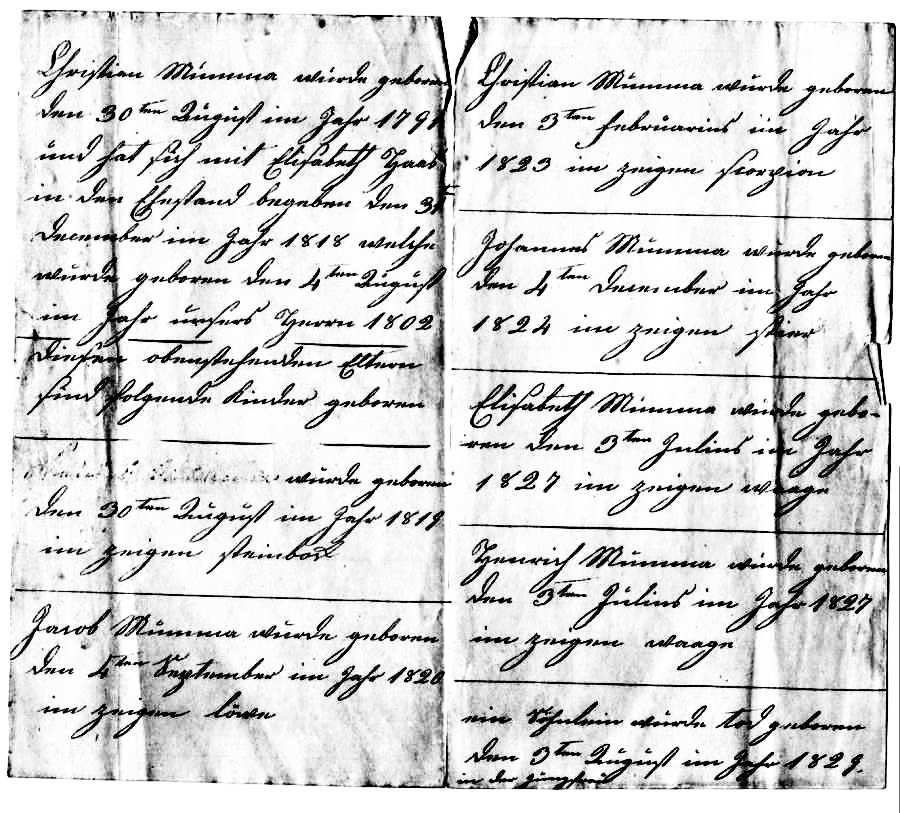 Christian Mumma wurde geboren
den 30ten August im Jahr 1791
und hat sich mit Elisabeth Haas
in den Ehestand begeben den
December im Jahr 1818 welche
wurde geboren den 4ten August
im Jahr unsers Herrn 1802
Diesen obenstehenden Eltern
sind folgende Kinder geboren
wurde geboren
den 30ten August im Jahr 1819
im zeigen steinbock
Jacob Mumma wurde geboren
den 4ten September im Jahr 1820
im zeigen löwe
Christian Mumma wurde geboren
den 3ten Februarius im Jahr
1823 im zeigen scorpion
Johannes Mumma wurde geboren
den 4ten December im Jahr
1824 im zeigen stier
Elisabeth Mumma wurde gebo-
ren den 3ten Julius im Jahr
1827 im zeigen waage
Henrich Mumma wurde geboren
den 3ten Julius im Jahr 1827
im zeigen waage
ein Söhnlein wurde tod geboren
den 3ten August im Jahr 1829.
in der jungfrau